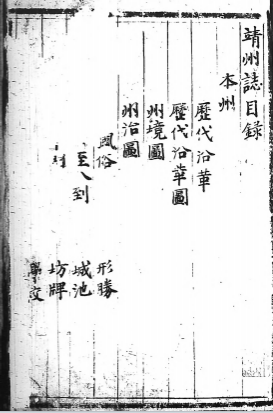 靖州誌目錄
本州
歷代沿革
歷代沿革圖
州境圖
州治圖
風俗 形勝
至八到 城池
坊牌
學校